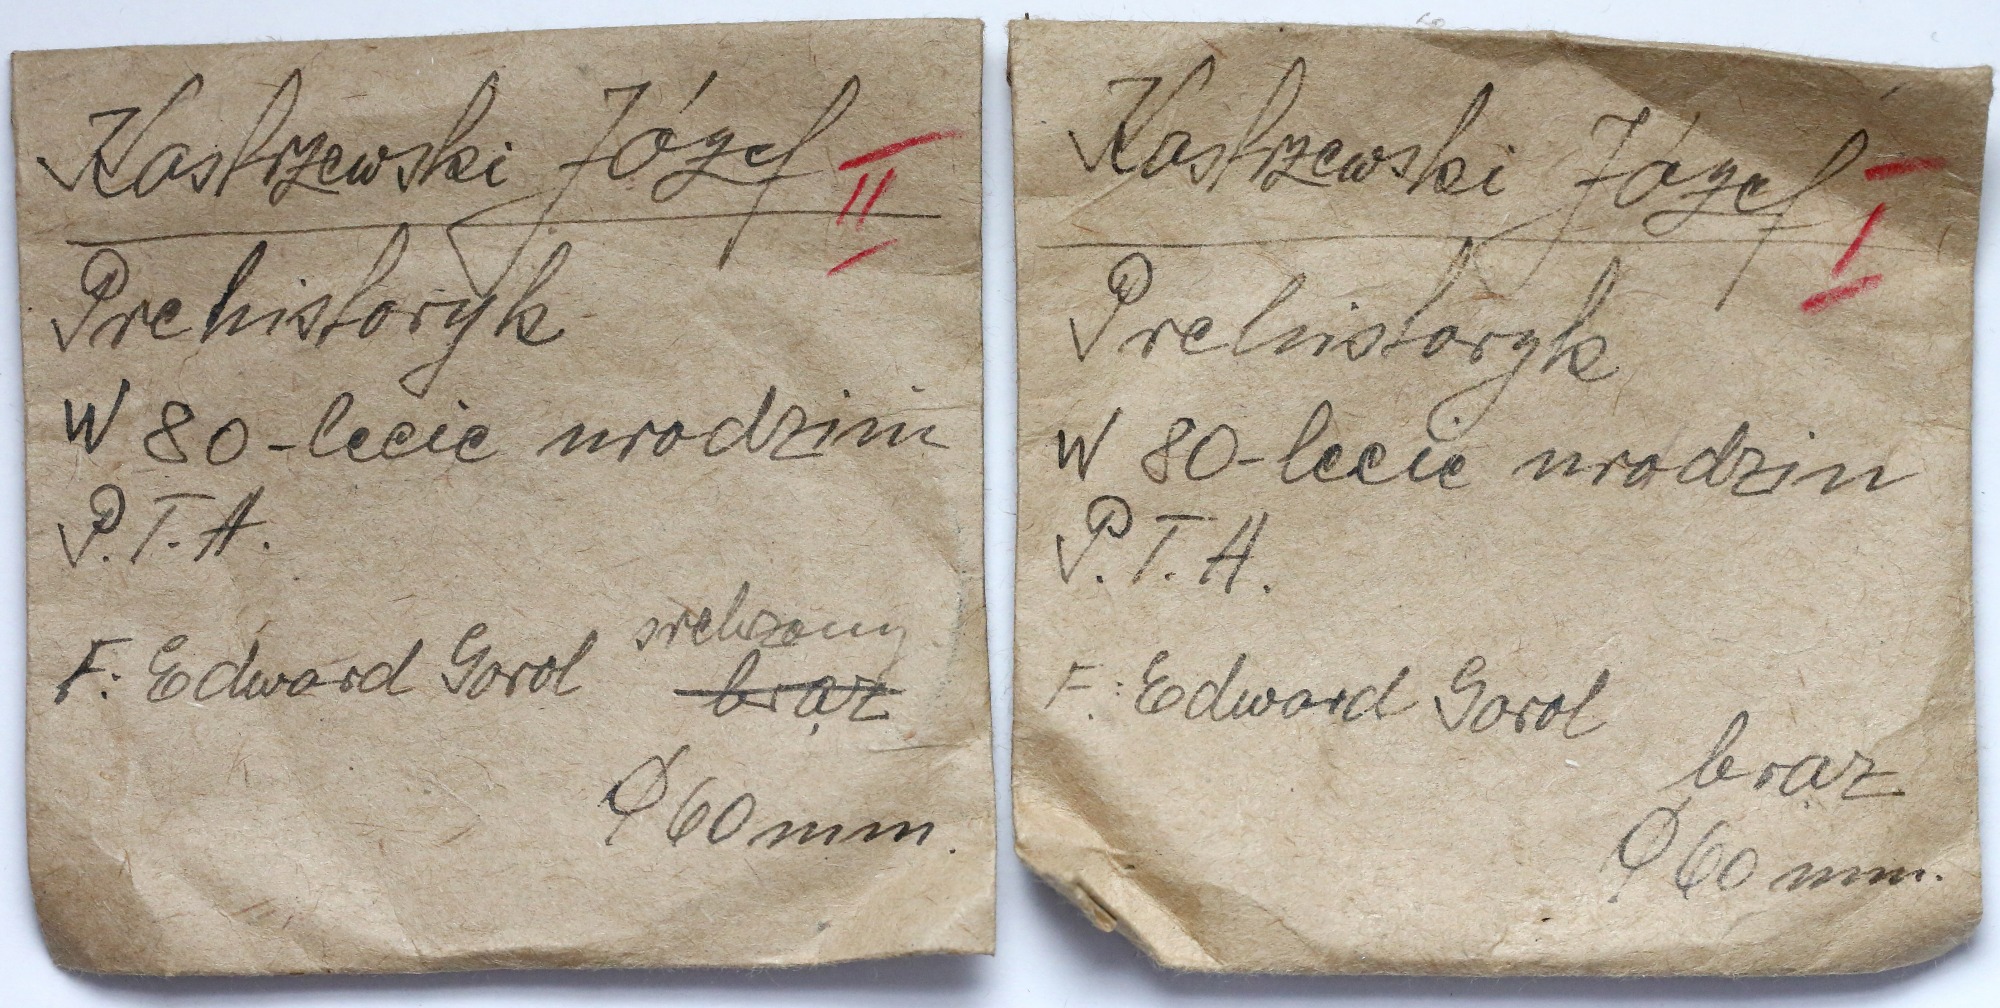 Kostrzewski Józef II
Prehistoryk
W 80-lecie urodzin
P.T.A.
srebrzony
F: Edward Gorol braz
Ø 60 mm.
Kostrzewski Józef I
Prehistoryk
W 80-lecie urodzin
P.T.A.
F: Edward Gorol
braz
Ø 60 mm.